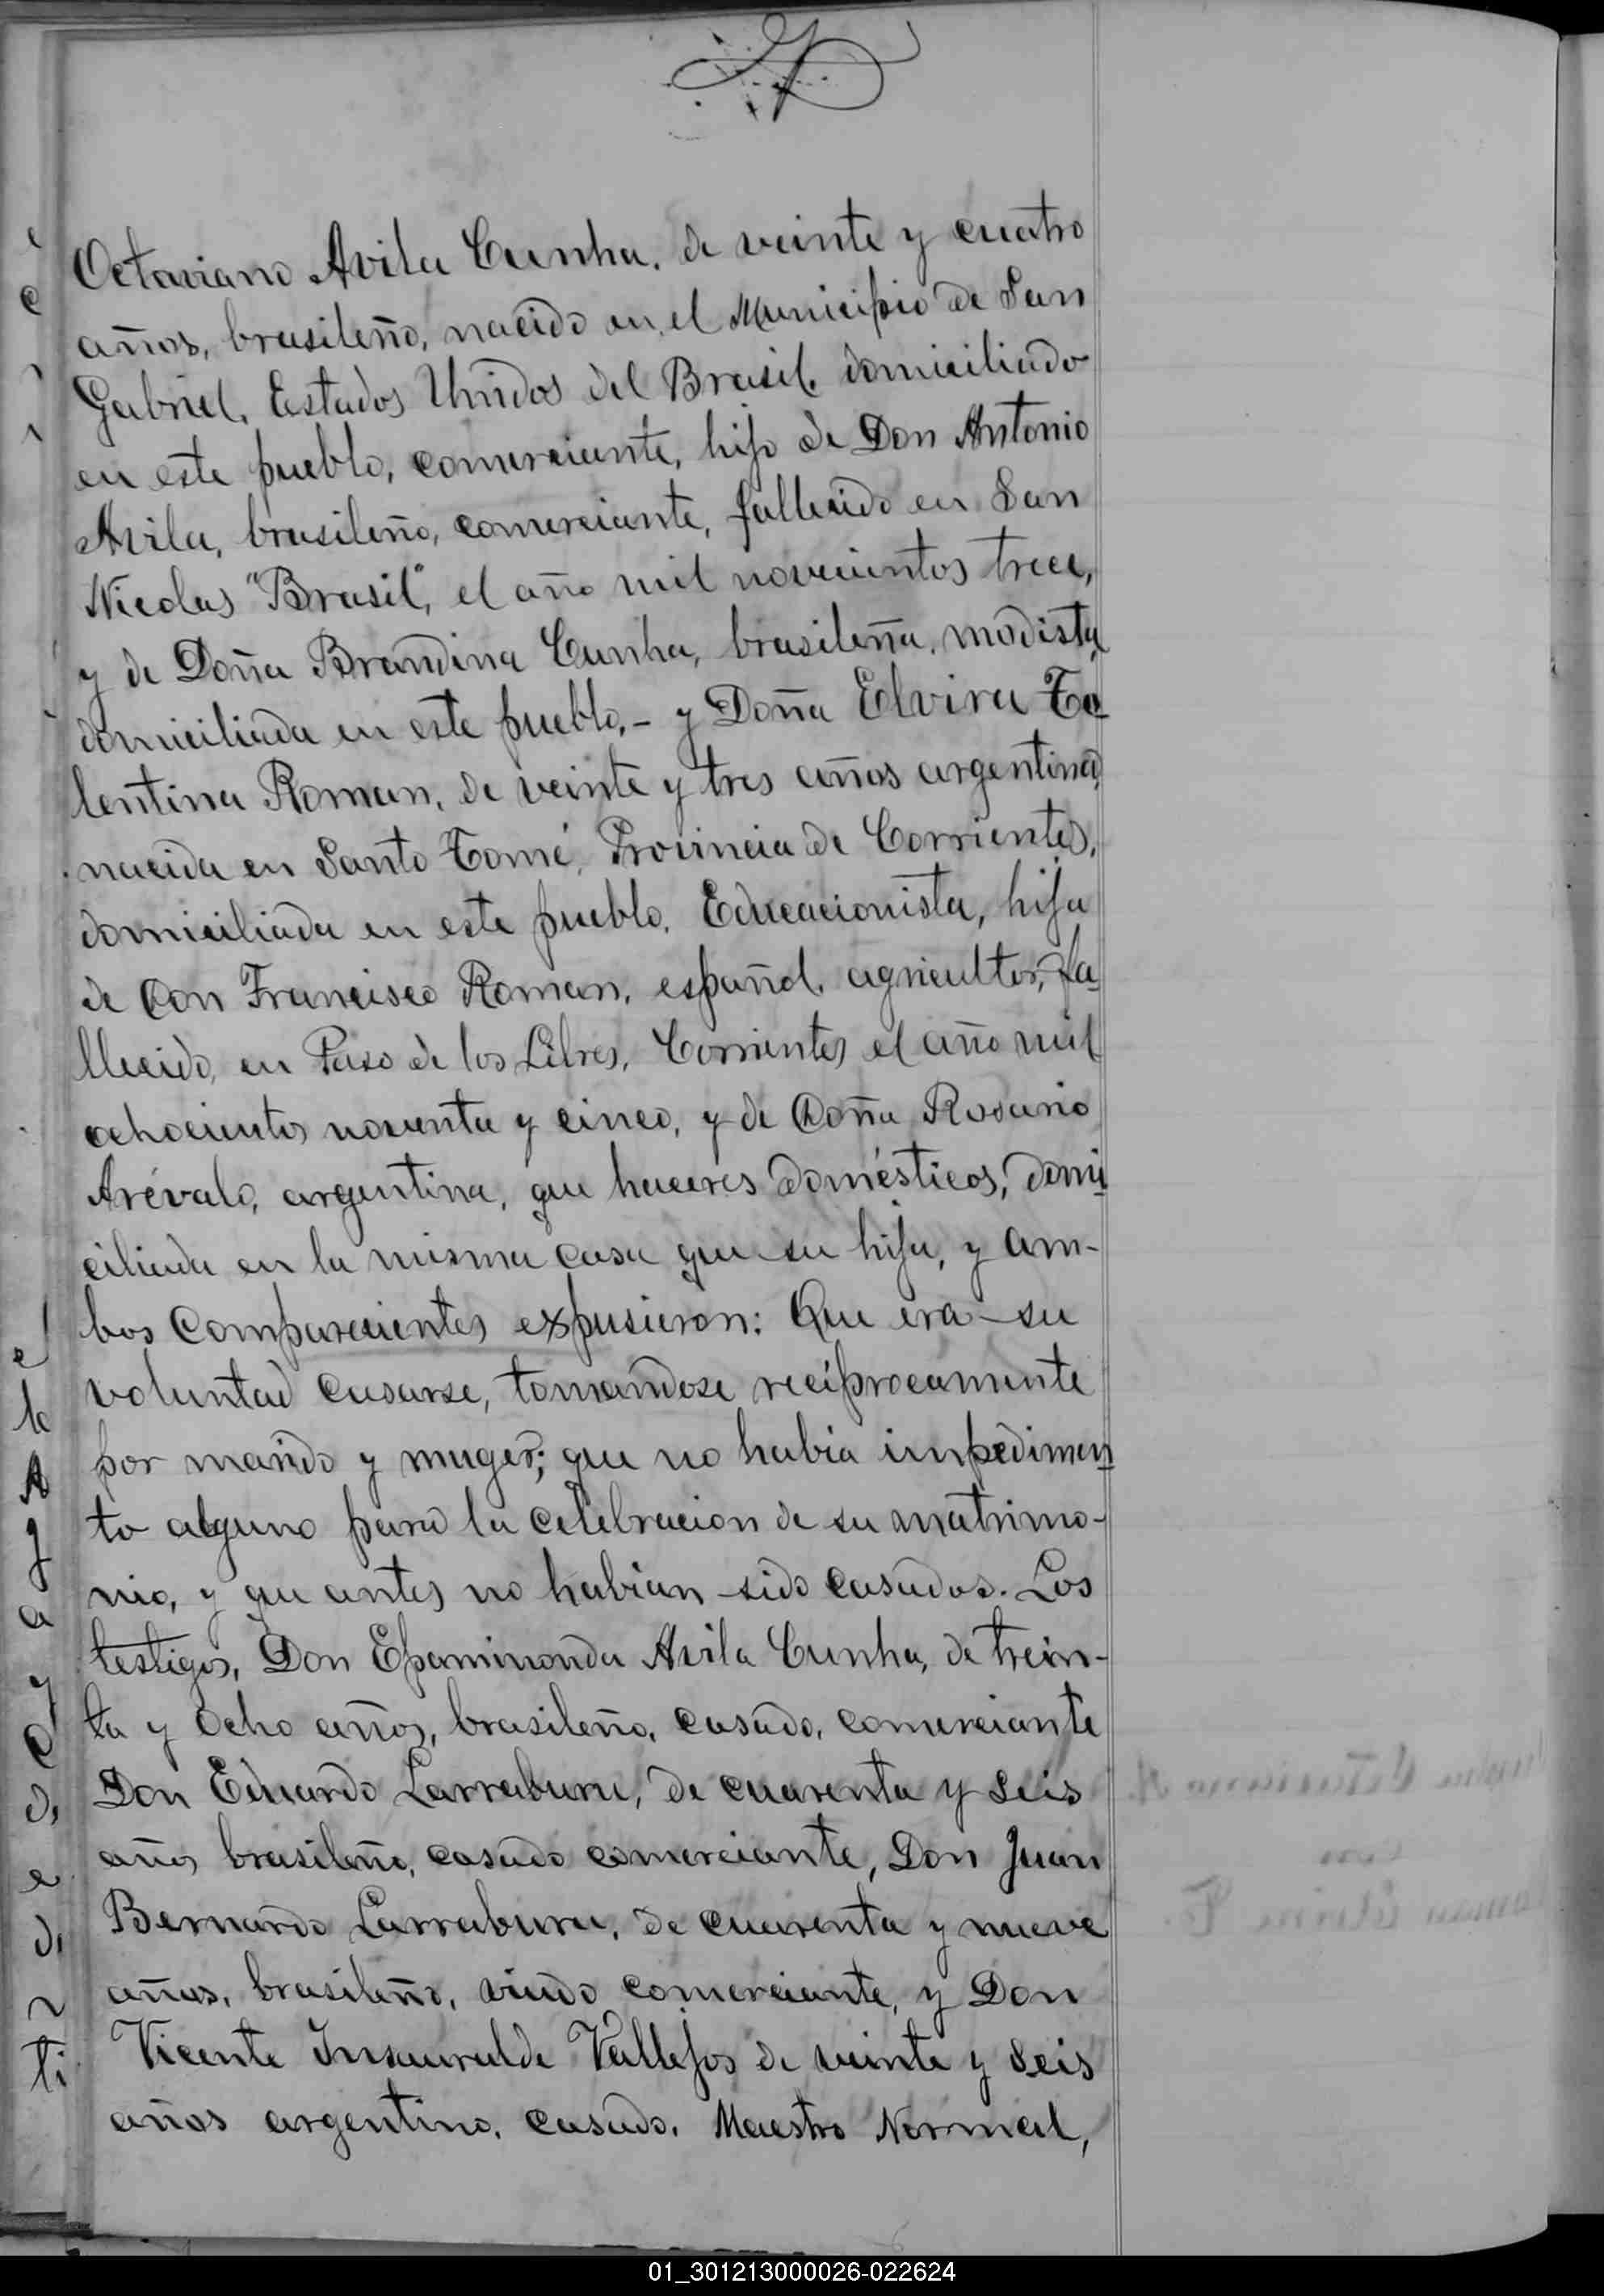 Octaviano Avila Cunha, de veinte y cuatro
años, brasileño, nacido en el Municipio de San
Gabriel, Estados Unidos del Brasil, domiciliado
en este pueblo, comerciante, hijo de Don Antonio
Avila, brasileño, comerciante, fallecido en San
Nicolas "Brasil", el año mil novecientos trece,
y de Doña Brandina Cunha, brasileña, modista,
domiciliada en este pueblo,- y Doña Elvira To_
lentina Roman, de veinte y tres años argentina,
nacida en Santo Tomé, Provincia de Corrientes,
domiciliada en este pueblo, Educacionista, hija
de Don Francisco Roman, español, agricultor, fa_
llecido, en Paso de los Libres, Corrientes el año mil
ochocientos noventa y cinco, y de Doña Rosario
Arévalo, argentina, que haceres domésticos, domi_
ciliada en la misma casa que su hija, y am-
bos comparecientes expusieron: Que era su
voluntad casarse, tomandose recíprocamente
por marido y muger; que no habia impedimen_
to alguno para la celebracion de su matrimo-
nio, y que antes no habian sido casados. Los
testigos, Don Epaminonda Avila Cunha, de trein-
ta y ocho años, brasileño, casado, comerciante
Don Eduardo Larraburu, de cuarenta y seis
años brasileño, casado comerciante, Don Juan
Bernardo Larraburu, de cuarenta y nueve
años, brasileño, viudo comerciante, y Don
Vicente Insaurralde Vallejos de veinte y seis
años argentino, casado, Maestro Normal,
01_301213000026-022624